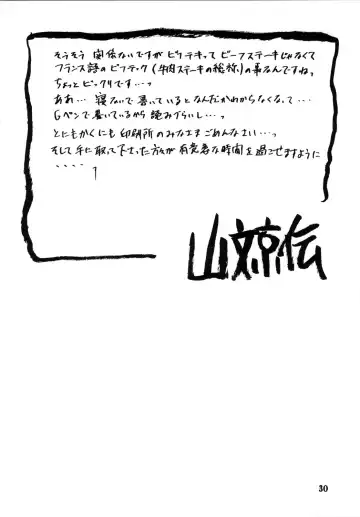 そうそう 関係ないですが ビフテキって ビーフステーキじゃなくて
フランス語のビフテック(牛肉ステーキの総称)の事なんですねっ
ちょっと ビックリです…っ
ああ… 寝ないで書いているとなんだかわからなくなって…
Gペンで書いているから読みづらいし…っ
とにもかくにも印刷所のみなさまごめんなさい…っ
そして手に取って下さった方々が有意義な時間を過ごせますように
山文京伝
30